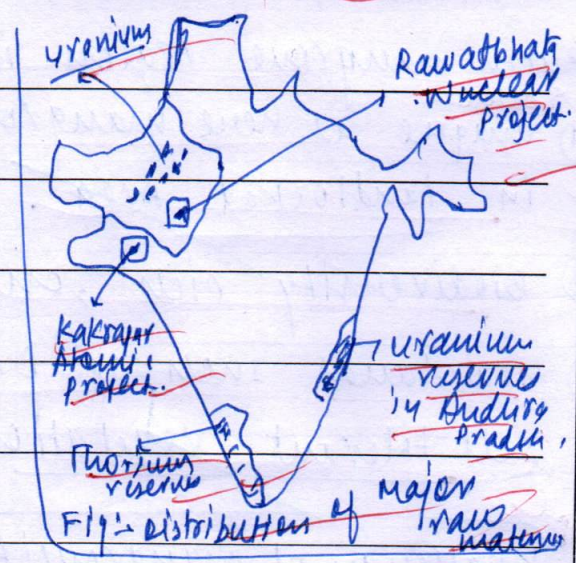 Uranium
Rawatbhata
Nuclear
Project.
Kakrapar
Atomic
project.
Uranium
reserves
in Andhra
Pradesh,
Thorium
reserves
Fig:- Distribution of Major
raw
materials